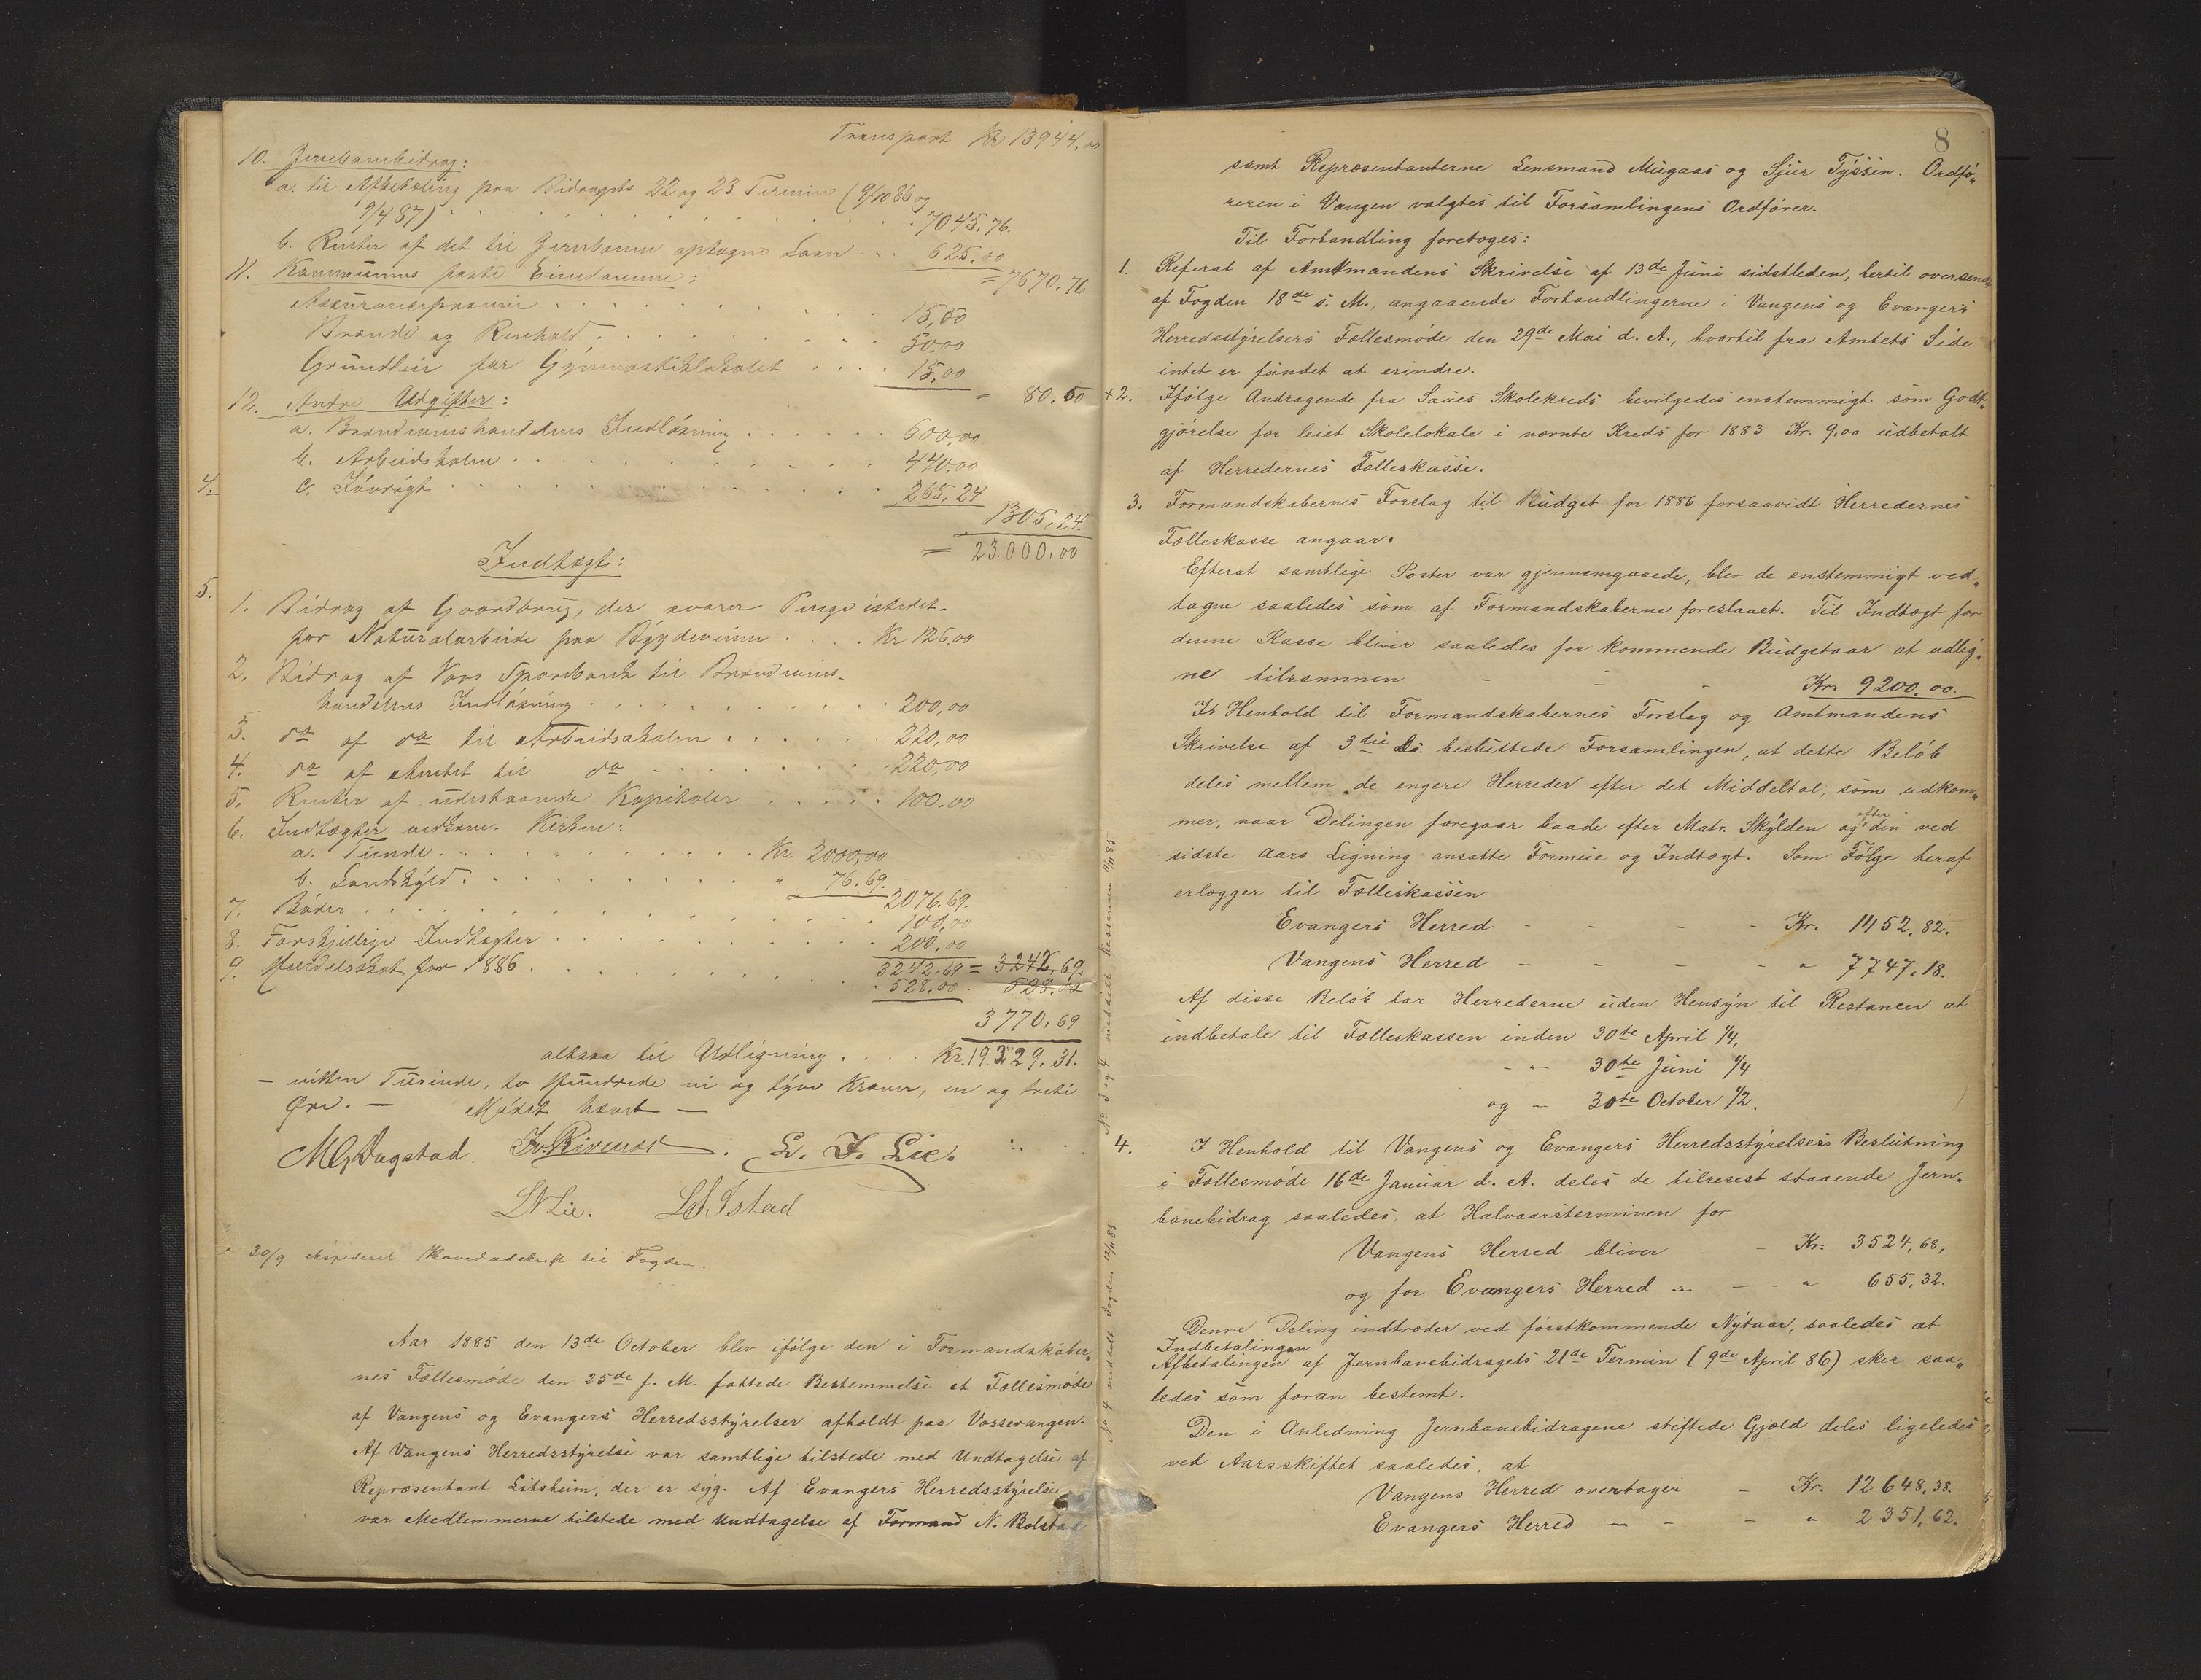 Transport Kr 13944,00
10. Jernbanebidrag:
a. til Afbetaling paa Bidragets 22 og 23 Termin (9/10 86 og
9/4 87) 7045,76.
b. Renter af det til Jernbanen optagne Laan 625,00
= 7670,76
11. Kommunens faste Eiendomme:
Assurancepræmie 15,00
Brænde og Renhold 50,00
Grundleie for Gymnastiklokalet 15,00
= 80,00
12. Andre Udgifter:
a. Brændevinshandelens Indløsning 600,00
b. Arbeidsskolen 440,00
4. c. Iøvrigt 265,24
1305,24
= 23.000,00
Indtægt:
5.
1. Bidrag af Gaardbrug, der svarer Penge istedet-
for Naturalarbeide paa Bygdeveiene Kr 126,00
2. Bidrag af Voss Sparebank til Brændevins-
handelens Indløsning 200,00
3. do af do til Arbeidsskolen 220,00
4. do af Amtet til do 220,00
5. Renter af udestaaende Kapitaler 100,00
6. Indtægter vedkom. Kirken:
a. Tiende Kr. 2000,00
b. Landskyld " 76,69.
2076,69.
7. Bøder 100,00
8. Forskjellige Indtægter 200,00
3242,69 = 3242,69
9. Hundeskat for 1886 528,00 528,00
3770,69
altsaa til Udligning Kr. 19229,31.
— nitten Tusinde, to Hundrede ni og tyve Kroner, en og treti
Øre. — Mødet hævet —
M G Dagstad. L. J. Lie.
L N Lie.
30/9 expederet Hovedudskrift til Fogden.
Aar 1885 den 13de October blev ifølge den i Formandskaber-
nes Fællesmøde den 25de f. M. fattede Bestemmelse et Fællesmøde
af Vangens og Evangers Herredsstyrelser afholdt paa Vossevangen.
Af Vangens Herredsstyrelse var samtlige tilstede med Undtagelse af
Repræsentant Litsheim, der er syg. Af Evangers Herredsstyrelse
var Medlemmerne tilstede med Undtagelse af Formand N. Bolstad
8
samt Repræsentanterne Lensmand Mugaas og Sjur Tyssen. Ordfø-
reren i Vangen valgtes til Forsamlingens Ordfører.
Til Forhandling foretoges:
1. Referat af Amtmandens Skrivelse af 13de Juni sidstleden, hertil oversendt
af Fogden 18de s. M., angaaende Forhandlingerne i Vangens og Evangers
Herredsstyrelsers Fællesmøde den 29de Mai d. A., hvortil fra Amtets Side
intet er fundet at erindre.
+2. Ifølge Andragende fra Saues Skolekreds bevilgedes enstemmigt som Godt-
gjørelse for leiet Skolelokale i nævnte Kreds for 1883 Kr. 9,00 udbetalt
af Herredernes Fælleskasse.
3. Formandskabernes Forslag til Budget for 1886 forsaavidt Herredernes
Fælleskasse angaar.
Efterat samtlige Poster var gjennemgaaede, blev de enstemmigt ved-
tagne saaledes som af Formandskaberne foreslaaet. Til Indtægt for
denne Kasse bliver saaledes for kommende Budgetaar at udlig-
ne tilsammen Kr. 9200,00.
I Henhold til Formandskabernes Forslag og Amtmandens
Skrivelse af 3die ds. besluttede Forsamlingen, at dette Beløb
deles mellem de engere Herreder efter det Middeltal, som udkom-
mer, naar Delingen foregaar baade efter Matr. Skylden og efter den ved
sidste Aars Ligning ansatte Formue og Indtægt. Som Følge heraf
erlægger til Fælleskassen
Evangers Herred Kr. 1452,82.
Vangens Herred " 7747,18.
Af disse Beløb har Herrederne uden Hensyn til Restancer at
indbetale til Fælleskassen inden 30te April 1/4,
- " - 30te Juni 1/4
og - 30te October 1/2.
4. I Henhold til Vangens og Evangers Herredsstyrelsers Beslutning
i Fællesmøde 16de Januar d. A. deles de tilresest staaende Jern-
banebidrag saaledes, at Halvaarsterminen for
Vangens Herred bliver Kr. 3524,68,
og for Evangers Herred " 655,32.
Denne Deling indtræder ved førstkommende Nytaar, saaledes at
Indbetalingen
Afbetalingen af Jernbanebidragets 21de Termin (9de April 86) sker saa-
ledes som foran bestemt.
Den i Anledning Jernbanebidragene stiftede Gjæld deles ligeledes
ved Aarsskiftet saaledes, at
Vangens Herred overtager Kr. 12648,38.
Evangers Herred — " 2351,62.
No 3 og 4 meddelt Kassereren 11/11 85
No 4 meddelt Fogden 12/11 85